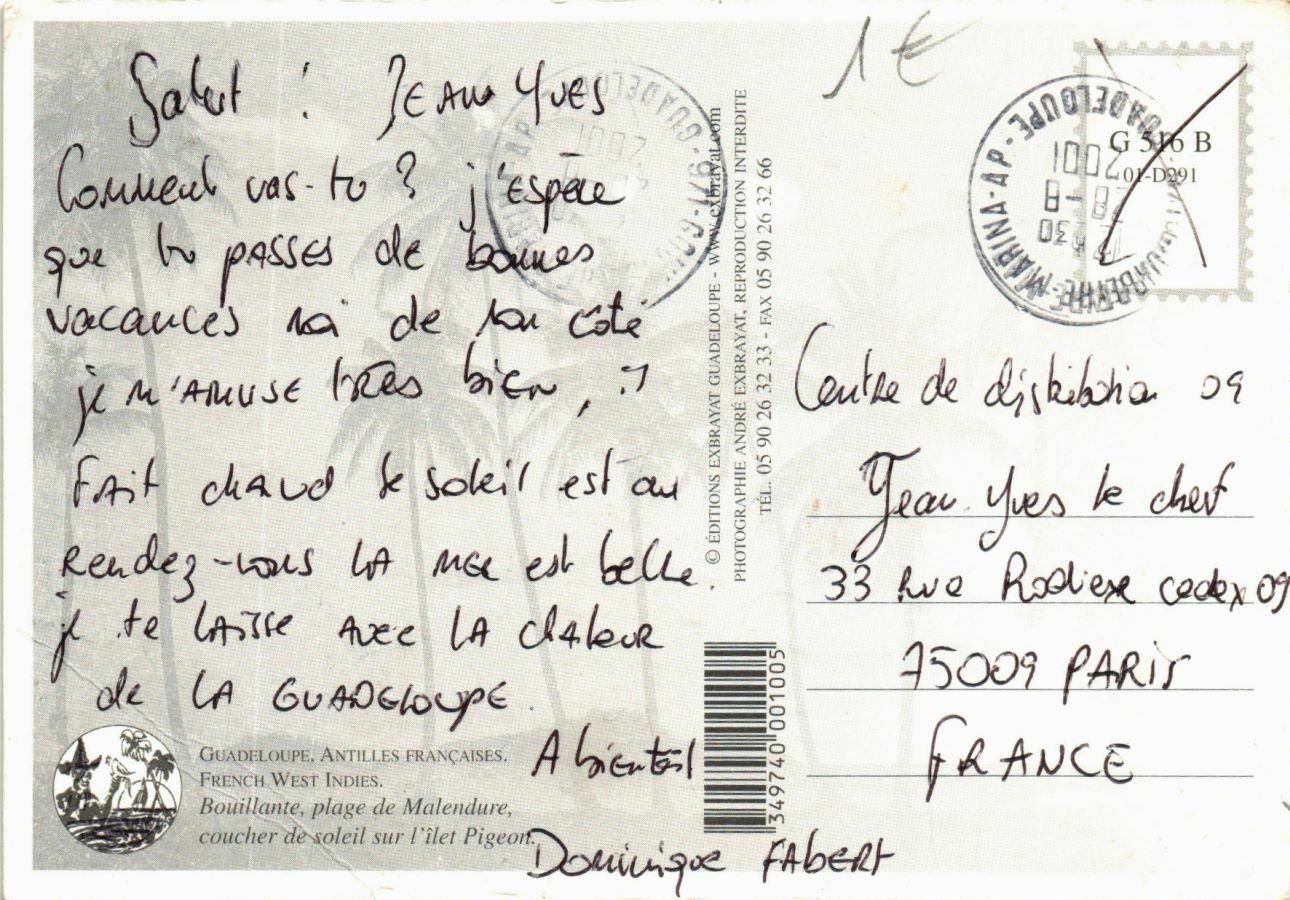 1€
Salut ! JEAN YVES
Comment vas-tu ? j'espère
que tu passes de bonnes
vacances moi de mon côté
je m'amuse très bien, il
fait chaud le soleil est au
rendez-vous la mer est belle.
je te laisse avec la chaleur
de la GUADELOUPE.
A bientôt
Dominique FABERT
GUADELOUPE, ANTILLES FRANÇAISES.
FRENCH WEST INDIES.
Bouillante, plage de Malendure,
coucher de soleil sur l'îlet Pigeon.
© ÉDITIONS EXBRAYAT GUADELOUPE - www.exbrayat.com
PHOTOGRAPHIE ANDRÉ EXBRAYAT, REPRODUCTION INTERDITE
TÉL. 05 90 26 32 33 - FAX 05 90 26 32 66
3 497 40 001005
G 516 B
01-D291
MARINA-AP - GUADELOUPE
2001
-8
Centre de distribution 09
Jean Yves le chef
33 rue cedex 09
75009 PARIS
FRANCE